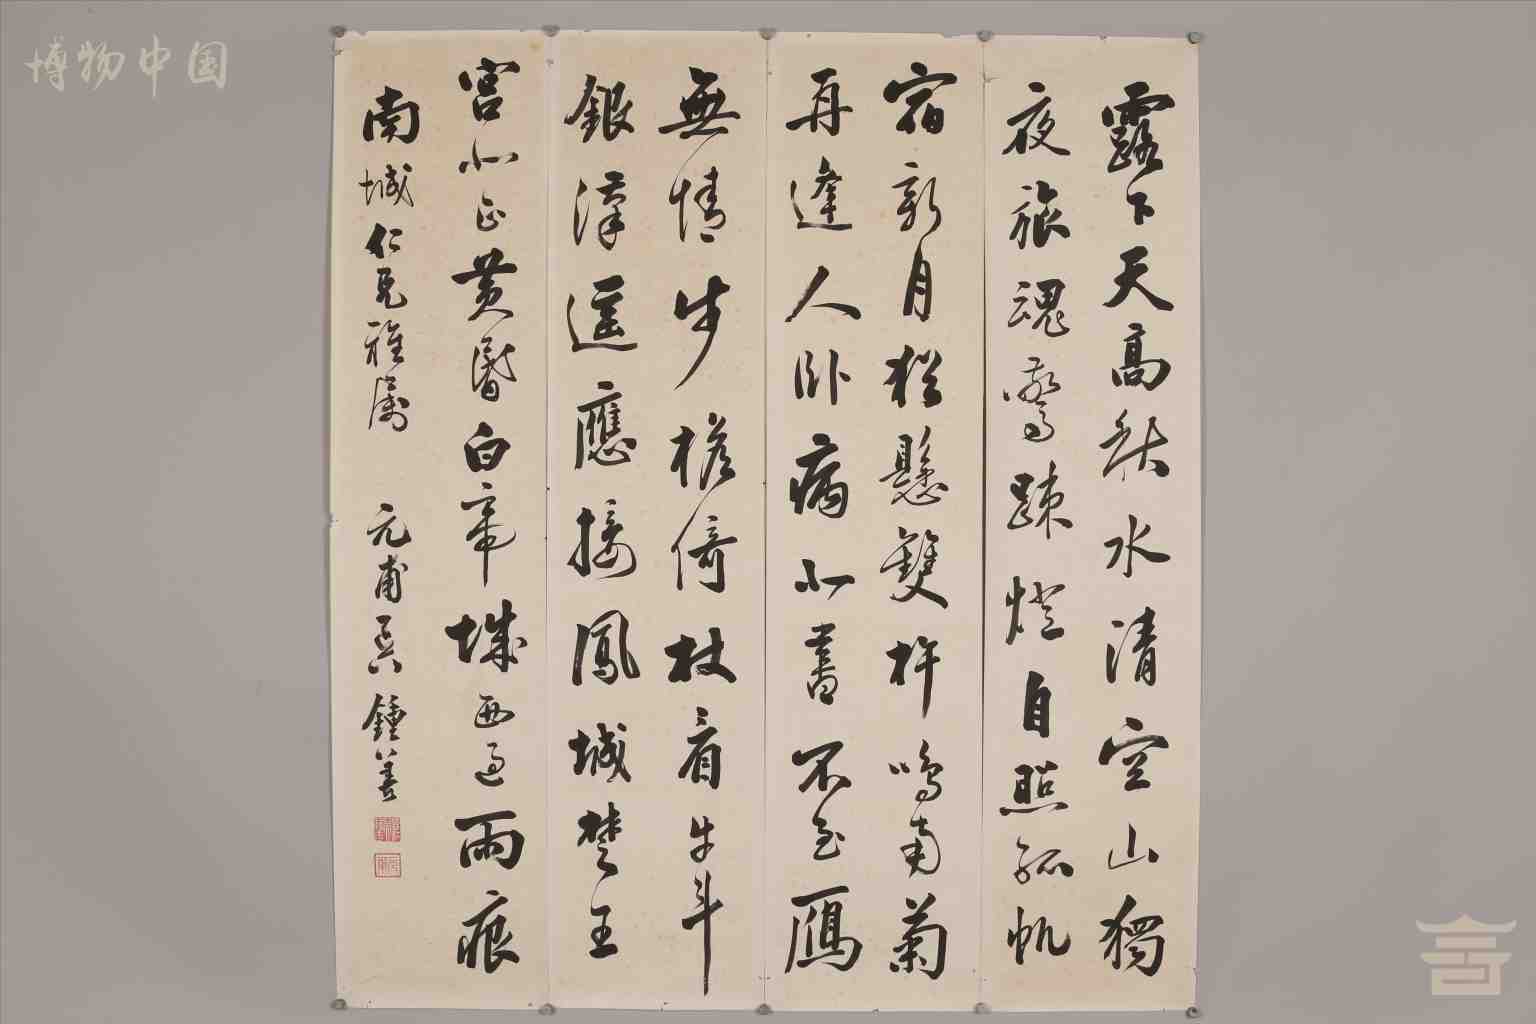 露下天高秋水清空山獨
夜旅魂驚疎燈自照孤帆
宿新月猶懸雙杵鳴南菊
再逢人卧病北書不至鴈
無情步檐倚杖看牛斗
銀漢遥應接鳳城楚王
宫北正黄昏白帝城西過雨痕
南城仁兄雅属
元甫吴鍾善
博物中国